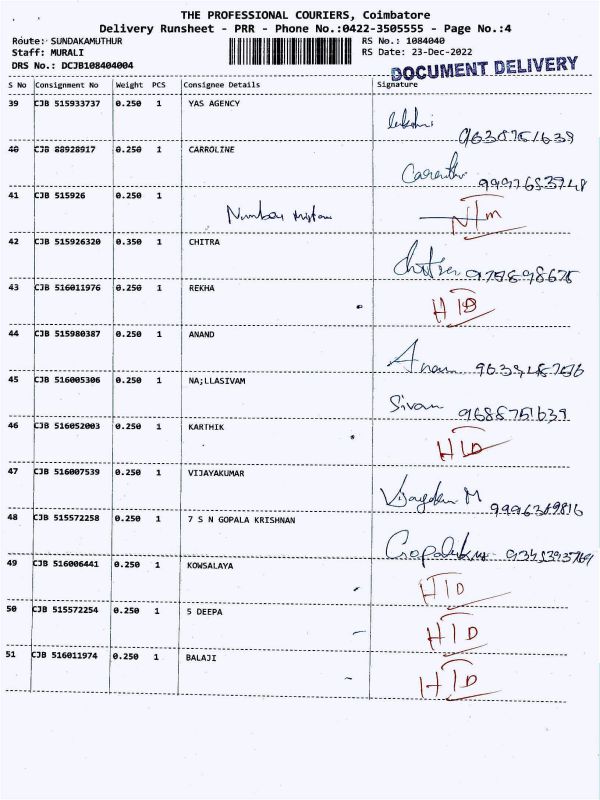 THE PROFESSIONAL COURIERS, Coimbatore
Delivery Runsheet - PRR - Phone No.:0422-3505555 - Page No.:4
Route: SUNDAKAMUTHUR RS No.: 1084040
Staff: MURALI RS Date: 23-Dec-2022
DRS No.: DCJB108404004
DOCUMENT DELIVERY
S No Consignment No Weight PCS Consignee Details Signature
39 CJB 515933737 0.250 1 YAS AGENCY
40 CJB 88928917 0.250 1 CARROLINE
41 CJB 515926 0.250 1 Number NTM
42 CJB 515926320 0.350 1 CHITRA Chitra
43 CJB 516011976 0.250 1 REKHA HID
44 CJB 515980387 0.250 1 ANAND
45 CJB 516005306 0.250 1 NA;LLASIVAM Sivam 9688751639
46 CJB 516052003 0.250 1 KARTHIK HID
47 CJB 516007539 0.250 1 VIJAYAKUMAR
48 CJB 515572258 0.250 1 7 S N GOPALA KRISHNAN
49 CJB 516006441 0.250 1 KOWSALAYA HID
50 CJB 515572254 0.250 1 S DEEPA HID
51 CJB 516011974 0.250 1 BALAJI HID